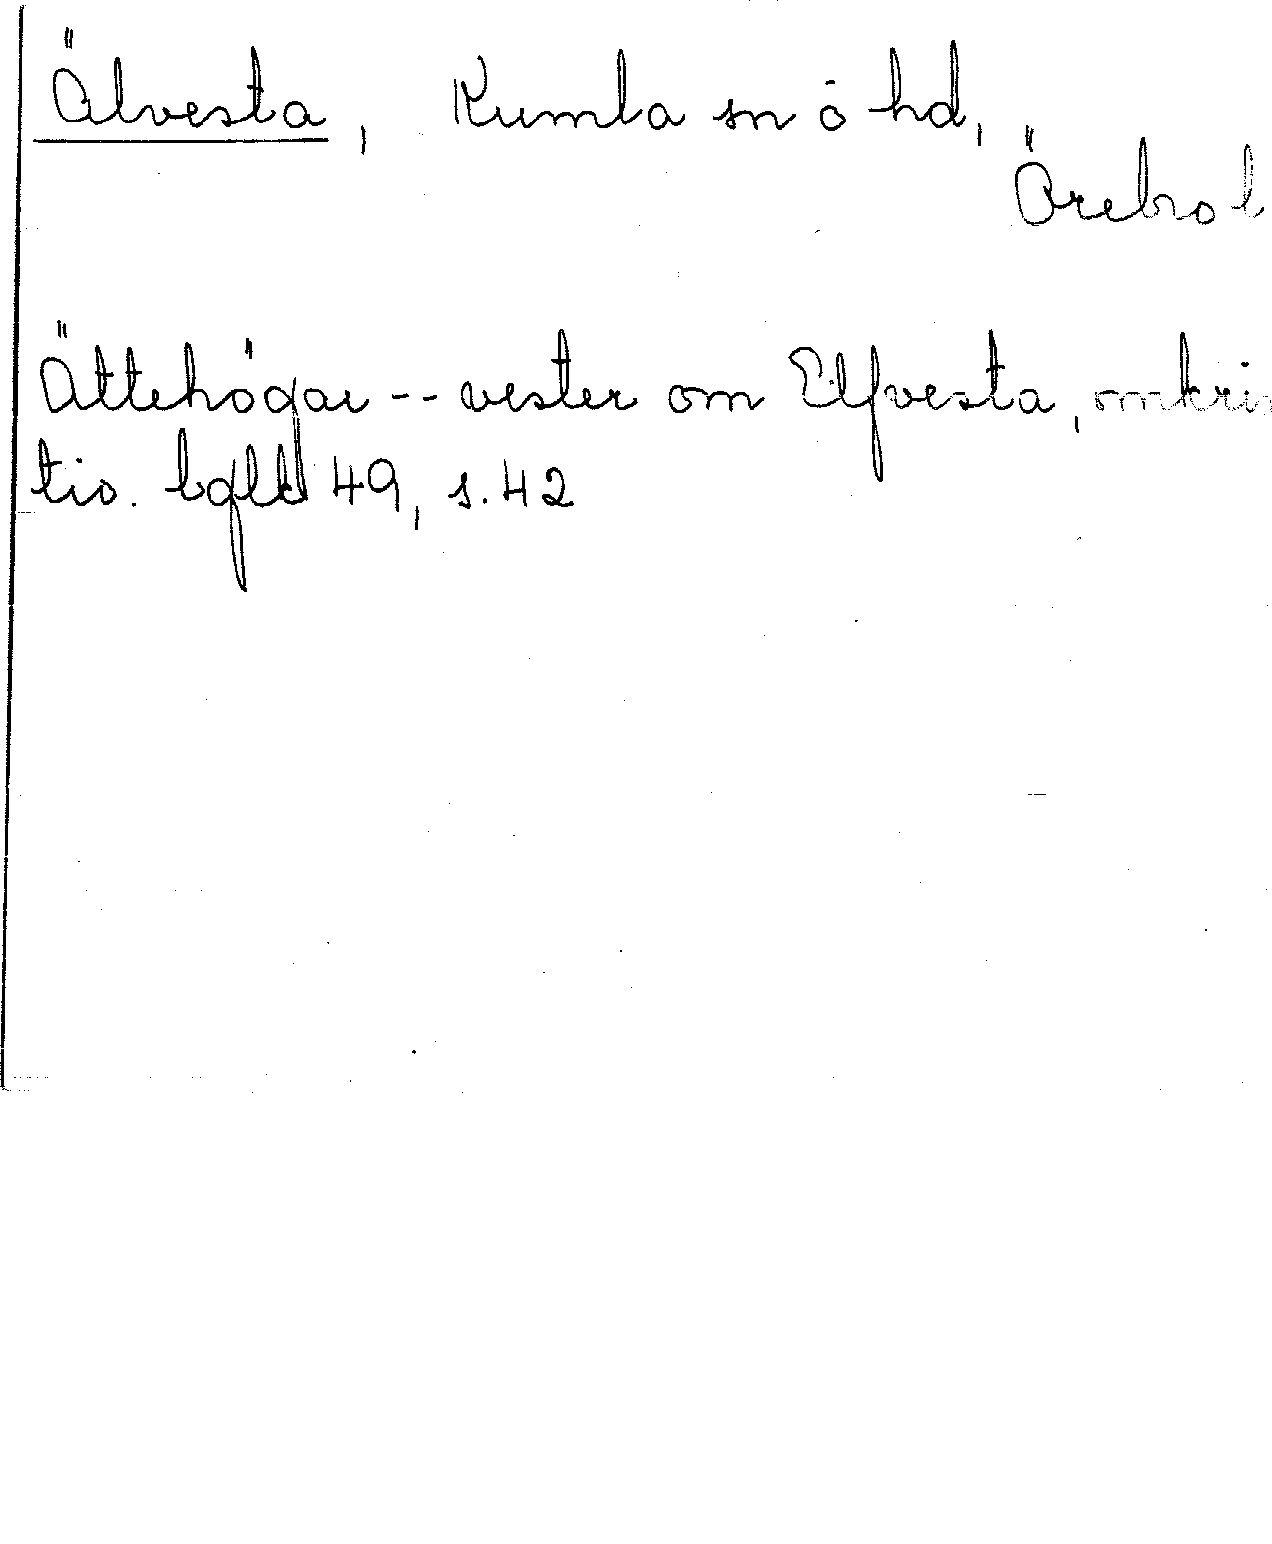 Älvesta, Kumla sn o hd,
Örebro l
Ättehögar -- vester om Elfvesta, omkrin
tio. bgld 49, s. 42